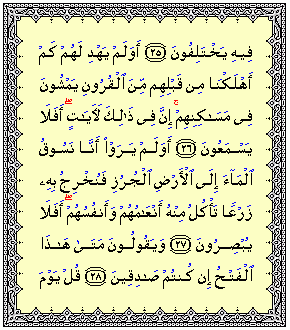 فِيهِ يَخْتَلِفُونَ ﴿٢٥﴾ أَوَلَمْ يَهْدِ لَهُمْ كَمْ
أَهْلَكْنَا مِن قَبْلِهِم مِّنَ ٱلْقُرُونِ يَمْشُونَ
فِى مَسَـٰكِنِهِمْ ۚ إِنَّ فِى ذَٰلِكَ لَـَٔايَـٰتٍ ۖ أَفَلَا
يَسْمَعُونَ ﴿٢٦﴾ أَوَلَمْ يَرَوْا۟ أَنَّا نَسُوقُ
ٱلْمَآءَ إِلَى ٱلْأَرْضِ ٱلْجُرُزِ فَنُخْرِجُ بِهِۦ
زَرْعًا تَأْكُلُ مِنْهُ أَنْعَـٰمُهُمْ وَأَنفُسُهُمْ ۖ أَفَلَا
يُبْصِرُونَ ﴿٢٧﴾ وَيَقُولُونَ مَتَىٰ هَـٰذَا
ٱلْفَتْحُ إِن كُنتُمْ صَـٰدِقِينَ ﴿٢٨﴾ قُلْ يَوْمَ